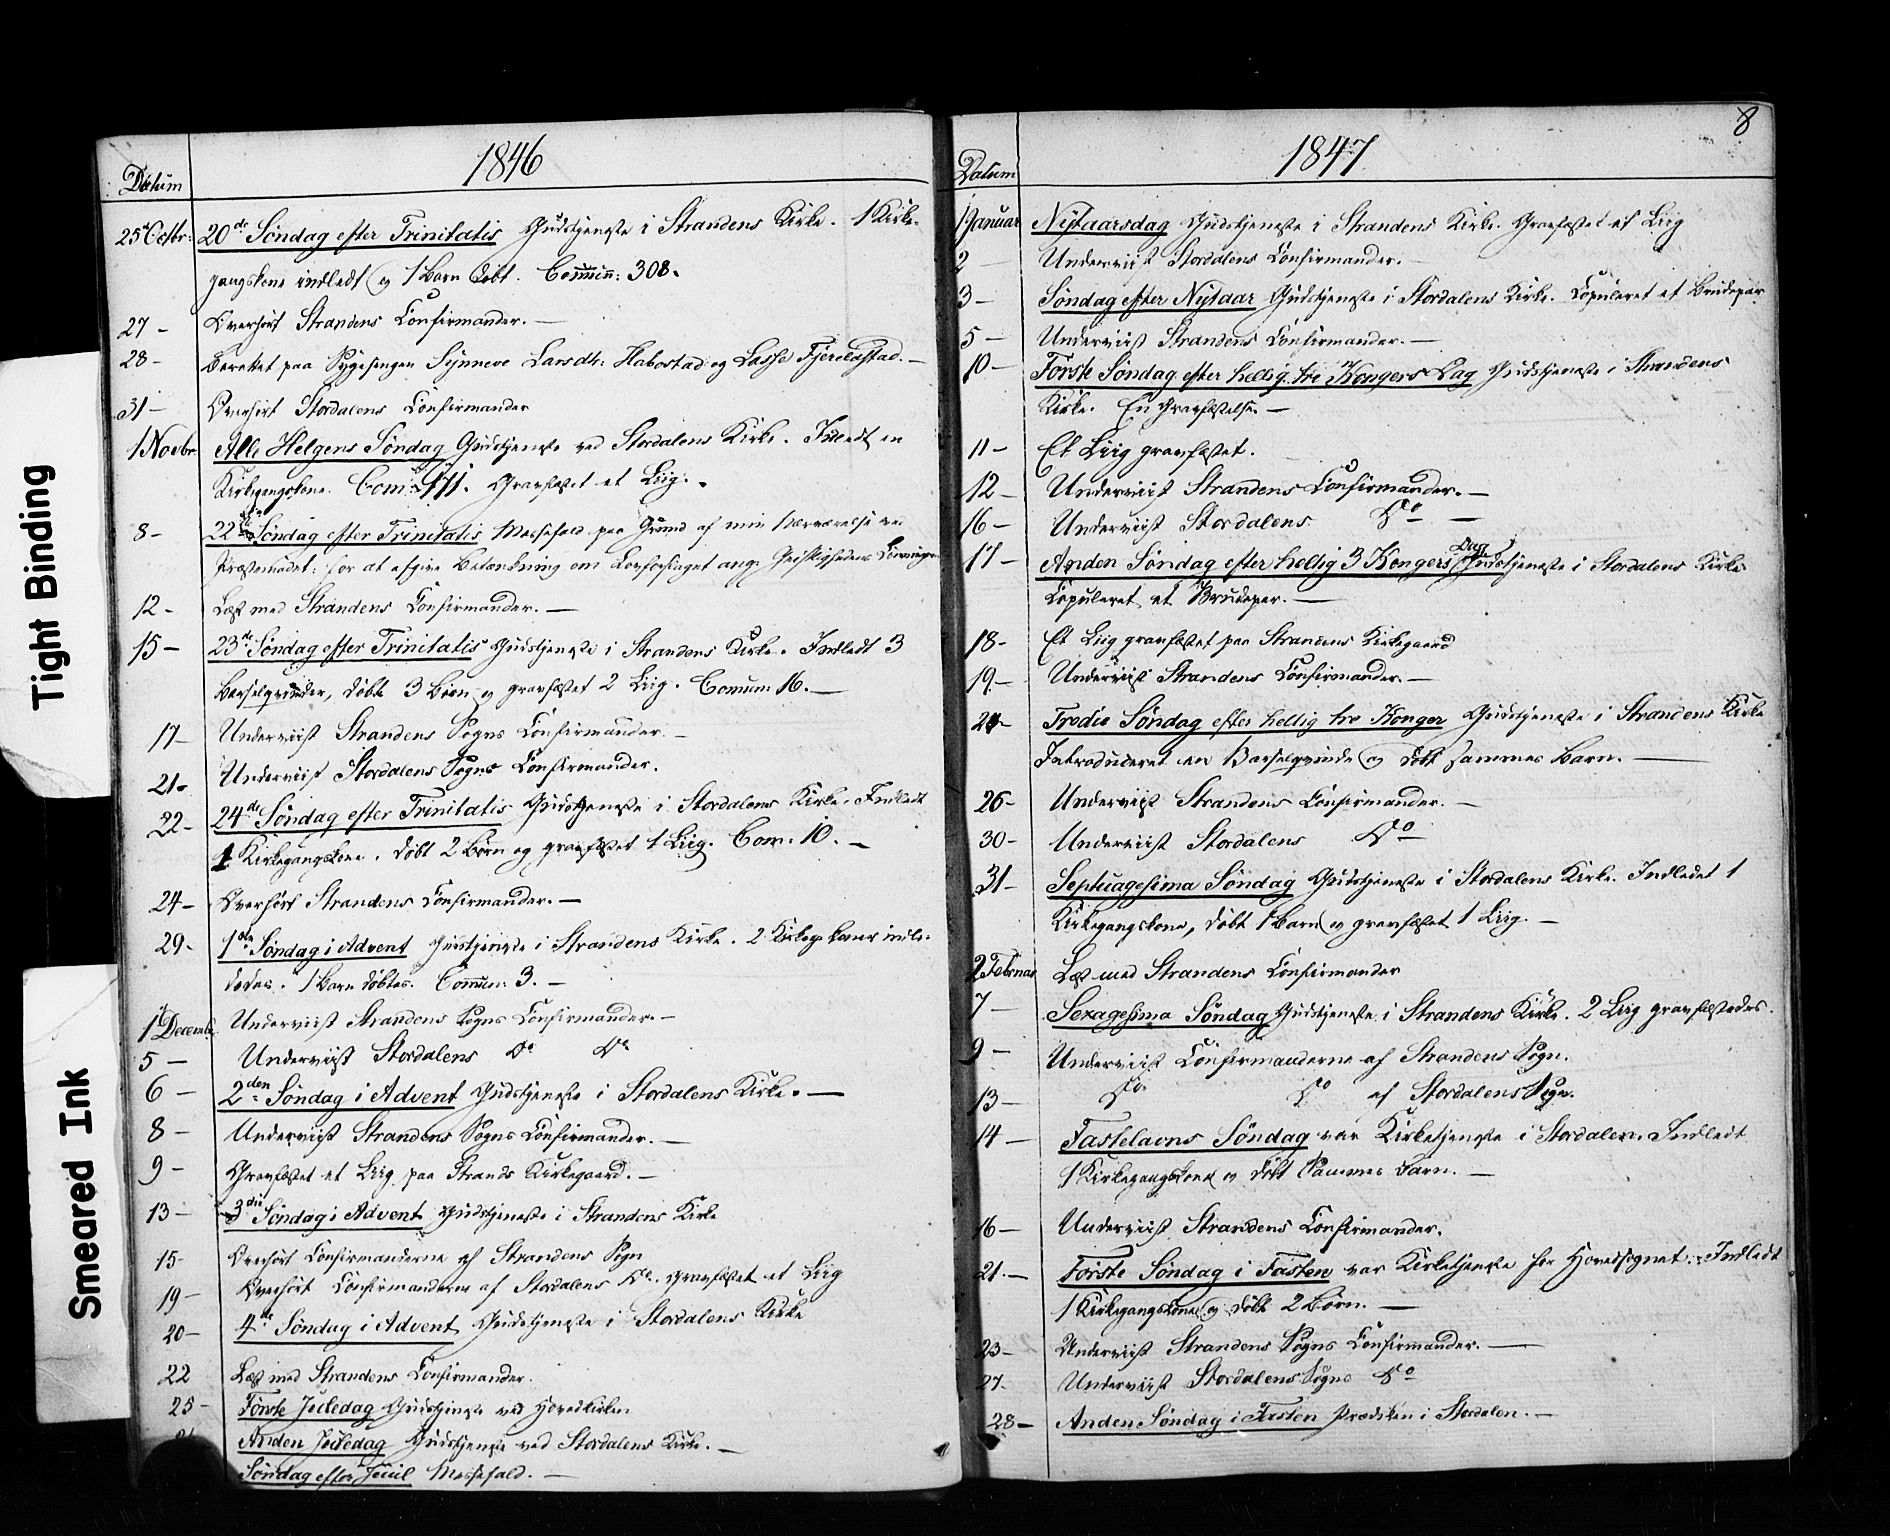 Tight Binding
Smeared Ink
1846
Datum
25 Octbr: 20de Søndag efter Trinitatis Gudstjeneste i Strandens Kirke. 1 Kirke-
gangskone indledt og 1 Barn døbt. Commun: 308.
27 – Overhørt Strandens Confirmander. –
28 – Berettet paa Sygesengen Synneve Larsdtr: Habostad og Lasse Fjerelastad. –
31 – Overhørt Stordalens Confirmander
1 Novbr. Alle Helgens Søndag Gudstjeneste ved Stordalens Kirke. Indledt en
Kirkegangskone. Com: 171. Gravfæstet et Liig. –
8 – 22de Søndag efter Trinitatis Messefald paa Grund af min Nærværelse ved
Præstemødet: for at afgive Betænkning om Lovforslaget ang. Geistlighedens
12 – Læst med Strandens Confirmander. –
15 – 23de Søndag efter Trinitatis Gudstjeneste i Strandens Kirke. Indledt 3
Barselqvinder, døbt 3 Børn og gravfæstet 2 Liig. Comun: 16. –
17 – Underviist Strandens Sogns Confirmander. –
21. Underviist Stordalens Sogns Confirmander.
22 – 24de Søndag efter Trinitatis Gudstjeneste i Stordalens Kirke. Indledt
1 Kirkegangskone, døbt 2 Børn og gravfæstet 1 Liig. Com. 10. –
24 – Overhørt Strandens Confirmander. –
29 – 1ste Søndag i Advent Gudstjeneste i Strandens Kirke. 2 Kirkeg. koner indle-
dedes. 1 Barn døbtes. Commun: 3. –
1 Decemb. Underviist Strandens Sogns Confirmander. –
5 – Underviist Stordalens Do Do
6 – 2den Søndag i Advent Gudstjeneste i Stordalens Kirke. –
8 – Underviist Strandens Sogns Confirmander. –
9 – Gravfæstet et Liig paa Strands Kirkegaard. –
13 – 3die Søndag i Advent Gudstjeneste i Strandens Kirke
15 – Overhørt Confirmanderne af Strandens Sogn
19 – Overhørt Confirmanderne af Stordalens Do. Gravfæstet et Liig
20 – 4de Søndag i Advent Gudstjeneste i Stordalens Kirke
22 Læst med Strandens Confirmander.
25 – Første Juledag Gudstjeneste ved Hovedkirken
Anden Juledag Gudstjeneste ved Stordalens Kirke. –
Søndag efter Juul Messefald. –
8
1847
Datum
1 Januar Nytaarsdag Gudstjeneste i Strandens Kirke. Gravfæstet et Liig
2 Underviist Stordalens Confirmander. –
3 – Søndag efter Nytaar Gudstjeneste i Stordalens Kirke. Copuleret et Brudepar
5 – Underviist Strandens Confirmander. –
10 – Første Søndag efter hellig tre Kongers Dag Gudstjeneste i Strandens
Kirke. En Gravfæstelse. –
11 – Et Liig gravfæstet.
12 – Underviist Strandens Confirmander. –
16 – Underviist Stordalens Do –
17 – Anden Søndag efter hellig 3 Kongers Dag Gudstjeneste i Stordalens Kirke
Copuleret et Brudepar. –
18 – Et Liig gravfæstet paa Strandens Kirkegaard
19 – Underviist Strandens Confirmander. –
24 – Tredie Søndag efter hellig tre Konger Gudstjeneste i Strandens Kirke
Introduceret en Barselqvinde og døbt sammes Barn. –
26 – Underviist Strandens Confirmander. –
30 – Underviist Stordalens Do
31 – Septuagesima Søndag Gudstjeneste i Stordalens Kirke. Indledet 1
Kirkegangskone, døbt 1 Barn og gravfæstet 1 Liig. –
2 Februar Læst med Strandens Confirmander
7 – Sexagesima Søndag Gudstjeneste i Strandens Kirke. 2 Liig gravfæstedes.
9 – Underviist Confirmanderne af Strandens Sogn.
13 – Do Do af Stordalens Sogn.
14 – Fastelavns Søndag var Kirketjeneste i Stordalen. Indledt
1 Kirkegangskone og døbt Sammes Barn. –
16 – Underviist Strandens Confirmander.
21. – Første Søndag i Fasten var Kirketjeneste for Hovedsognet. Indledt
1 Kirkegangskone og døbt 2 Børn. –
23 – Underviist Strandens Sogns Confirmander. –
27. Underviist Stordalens Sogns Do
28 – Anden Søndag i Fasten Prædiken i Stordalen. –